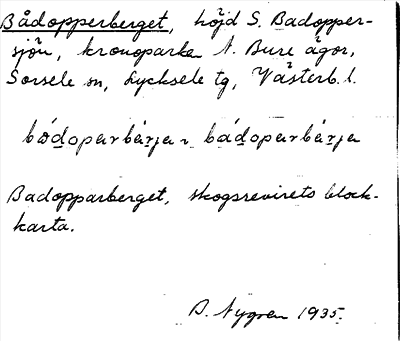 Bådopperberget, höjd S. Badopper-
sjön, kronoparken N. Bure ägor,
Sorsele sn, Lycksele tg, Västerb. l.
bódoparbärja r. bádoparbärja
Badopparberget, skogsrevirets block-
karta.
B. Nygren 1935.